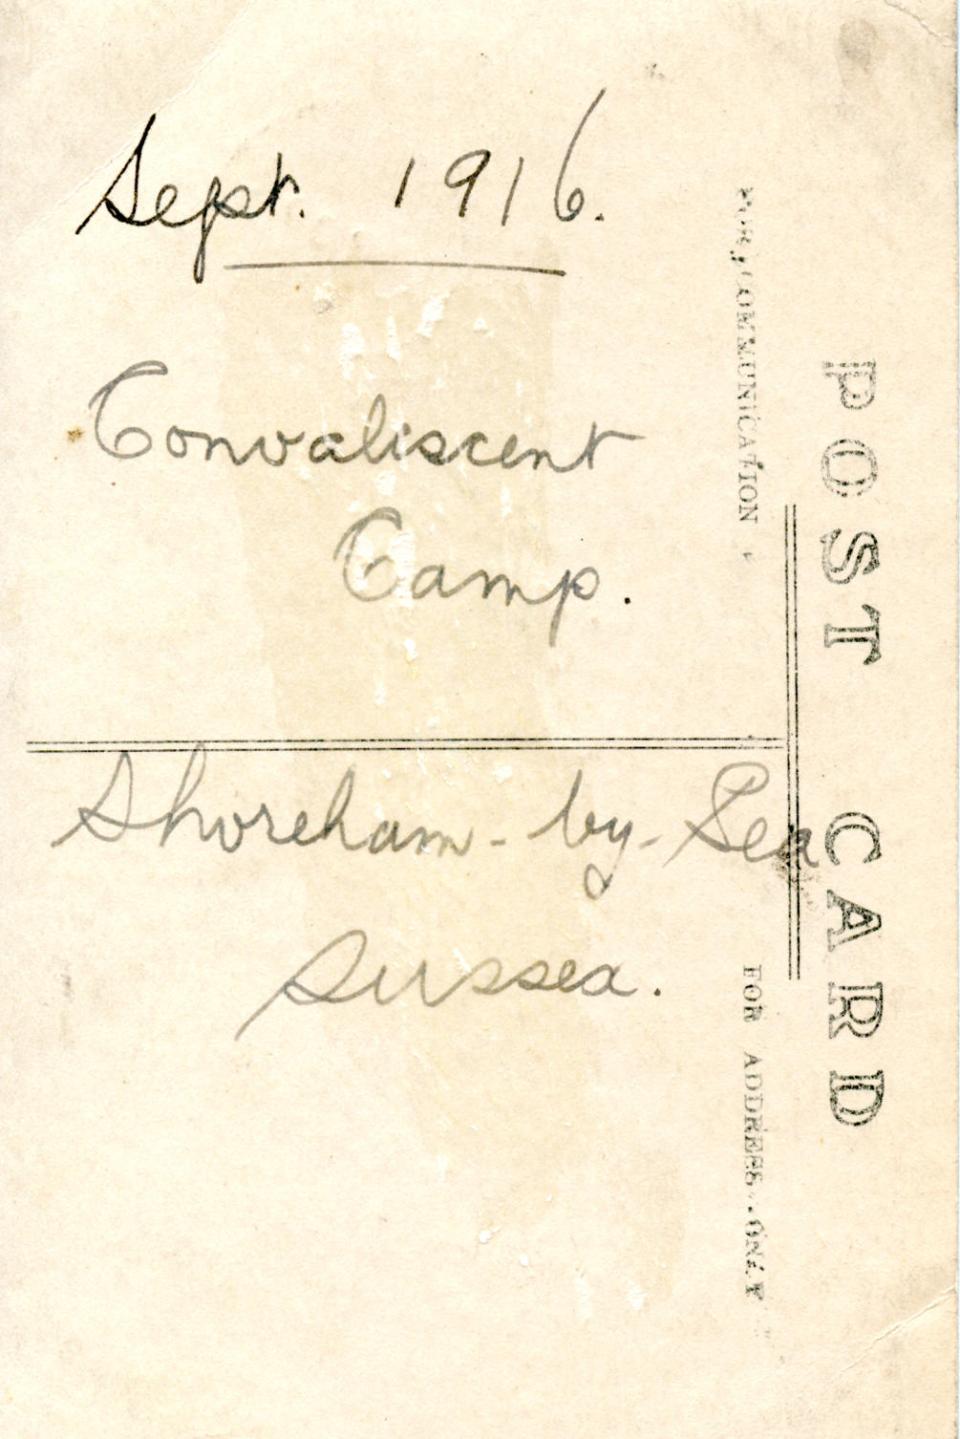 Sept. 1916.
Convaliscent
Camp.
Shoreham-by-Sea
Sussex.
POST CARD
FOR COMMUNICATION
FOR ADDRESS ONLY